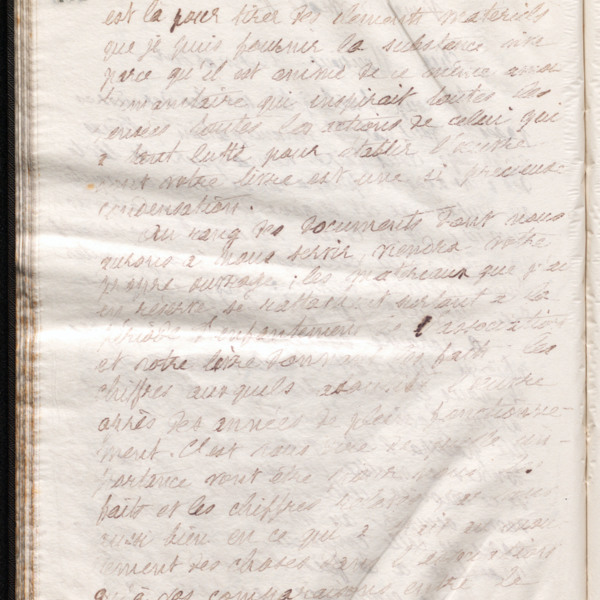 est là pour tirer des éléments matériels
que je puis fournir la substance vive
parce qu'il est animé de ce même amour
humanitaire qui inspirait toutes les
pensées toutes les actions de celui qui
a tant lutté pour établir l'œuvre
dont votre livre est une si précieuse
condensation.
Au rang des documents dont nous
aurons à nous servir viendra votre
propre ouvrage ; les matériaux que j'ai
en réserve se rattachent surtout à la
période d'enfantement de l'association
et votre livre donnant les faits les
chiffres auxquels
après des années de plein fonctionne-
ment. C'est vous dire de quelle im-
portance vont être pour nous les
faits et les chiffres
aussi bien en ce qui a trait au
des choses dans
qu'à des comparaisons entre le